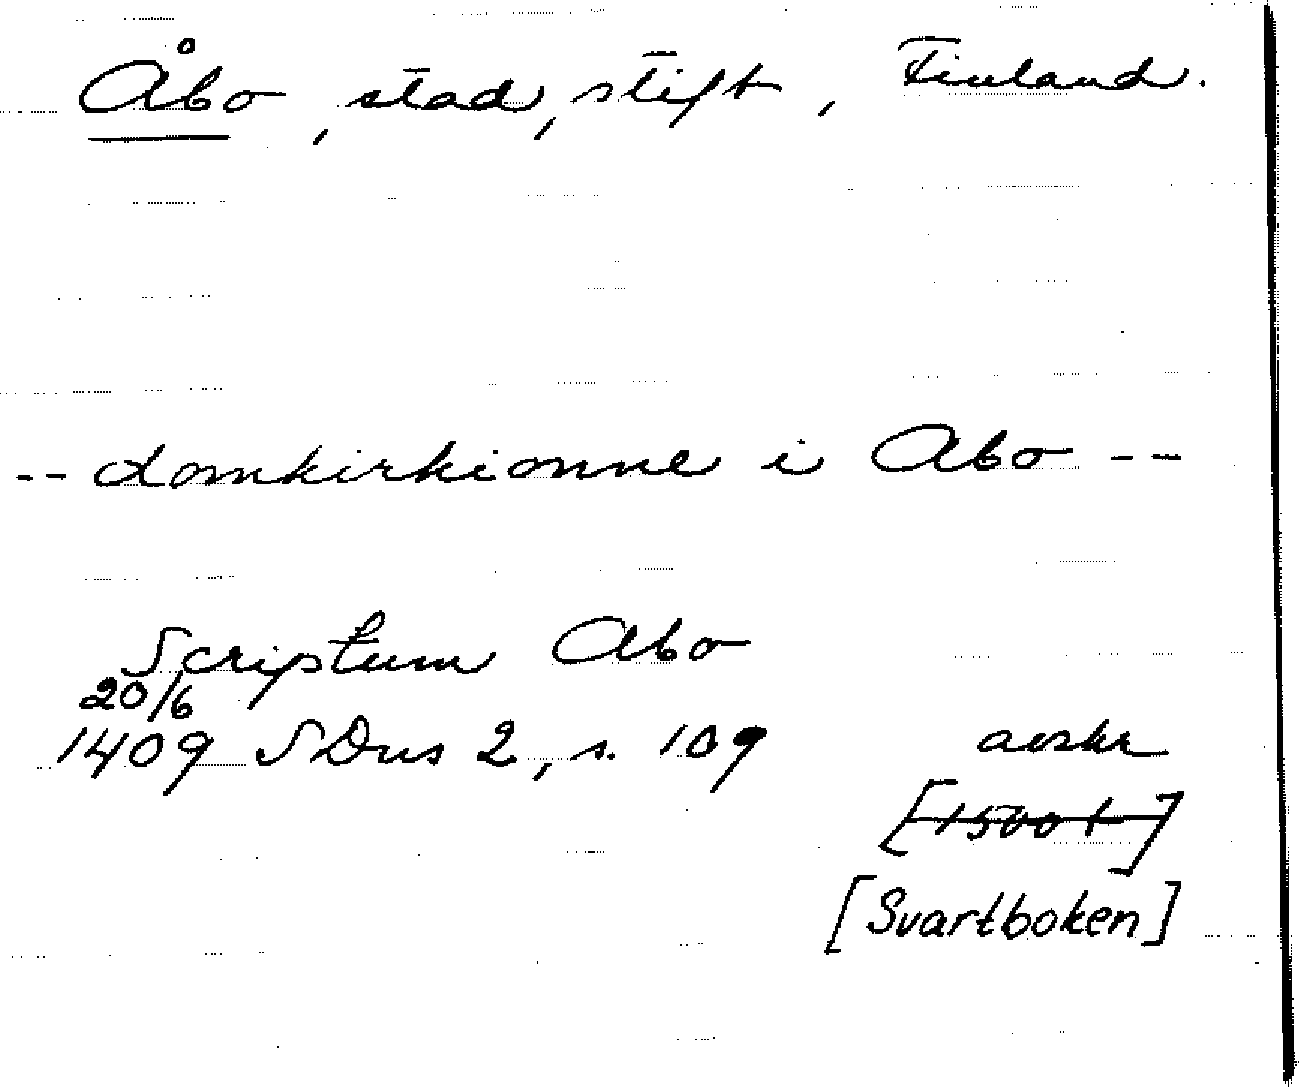 Åbo, stad, stift, Finland.
-- domkirkionne i Abo --
Scriptum Abo
20/6
1409 SDns 2, s. 109 avskr
[1500 t]
[Svartboken]